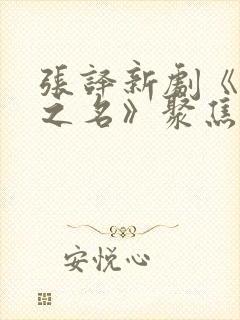 張譯新劇《
之名》聚焦
安悅心